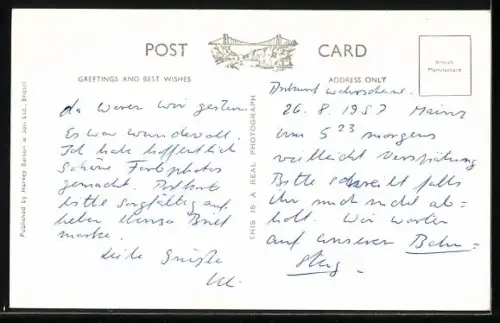 POST CARD
GREETINGS AND BEST WISHES
ADDRESS ONLY
British
Manufacture
Published by Harvey Barton & Son Ltd., Bristol
THIS IS A REAL PHOTOGRAPH
da waren wir gestern.
Es war wundervoll.
Ich habe hoffentlich
schöne Farbphotos
gemacht. Postkarte
bitte sorgfältig auf
heben ebenso Brief
marke.
Liebe Grüße
Ankunft wahrscheinl.
26. 8. 1957 Mainz
um 5 23 morgens
vielleicht Verspätung
Bitte schreibt falls
Ihr mich nicht ab-
holt. Wir warten
auf unserem Bahn-
steig.